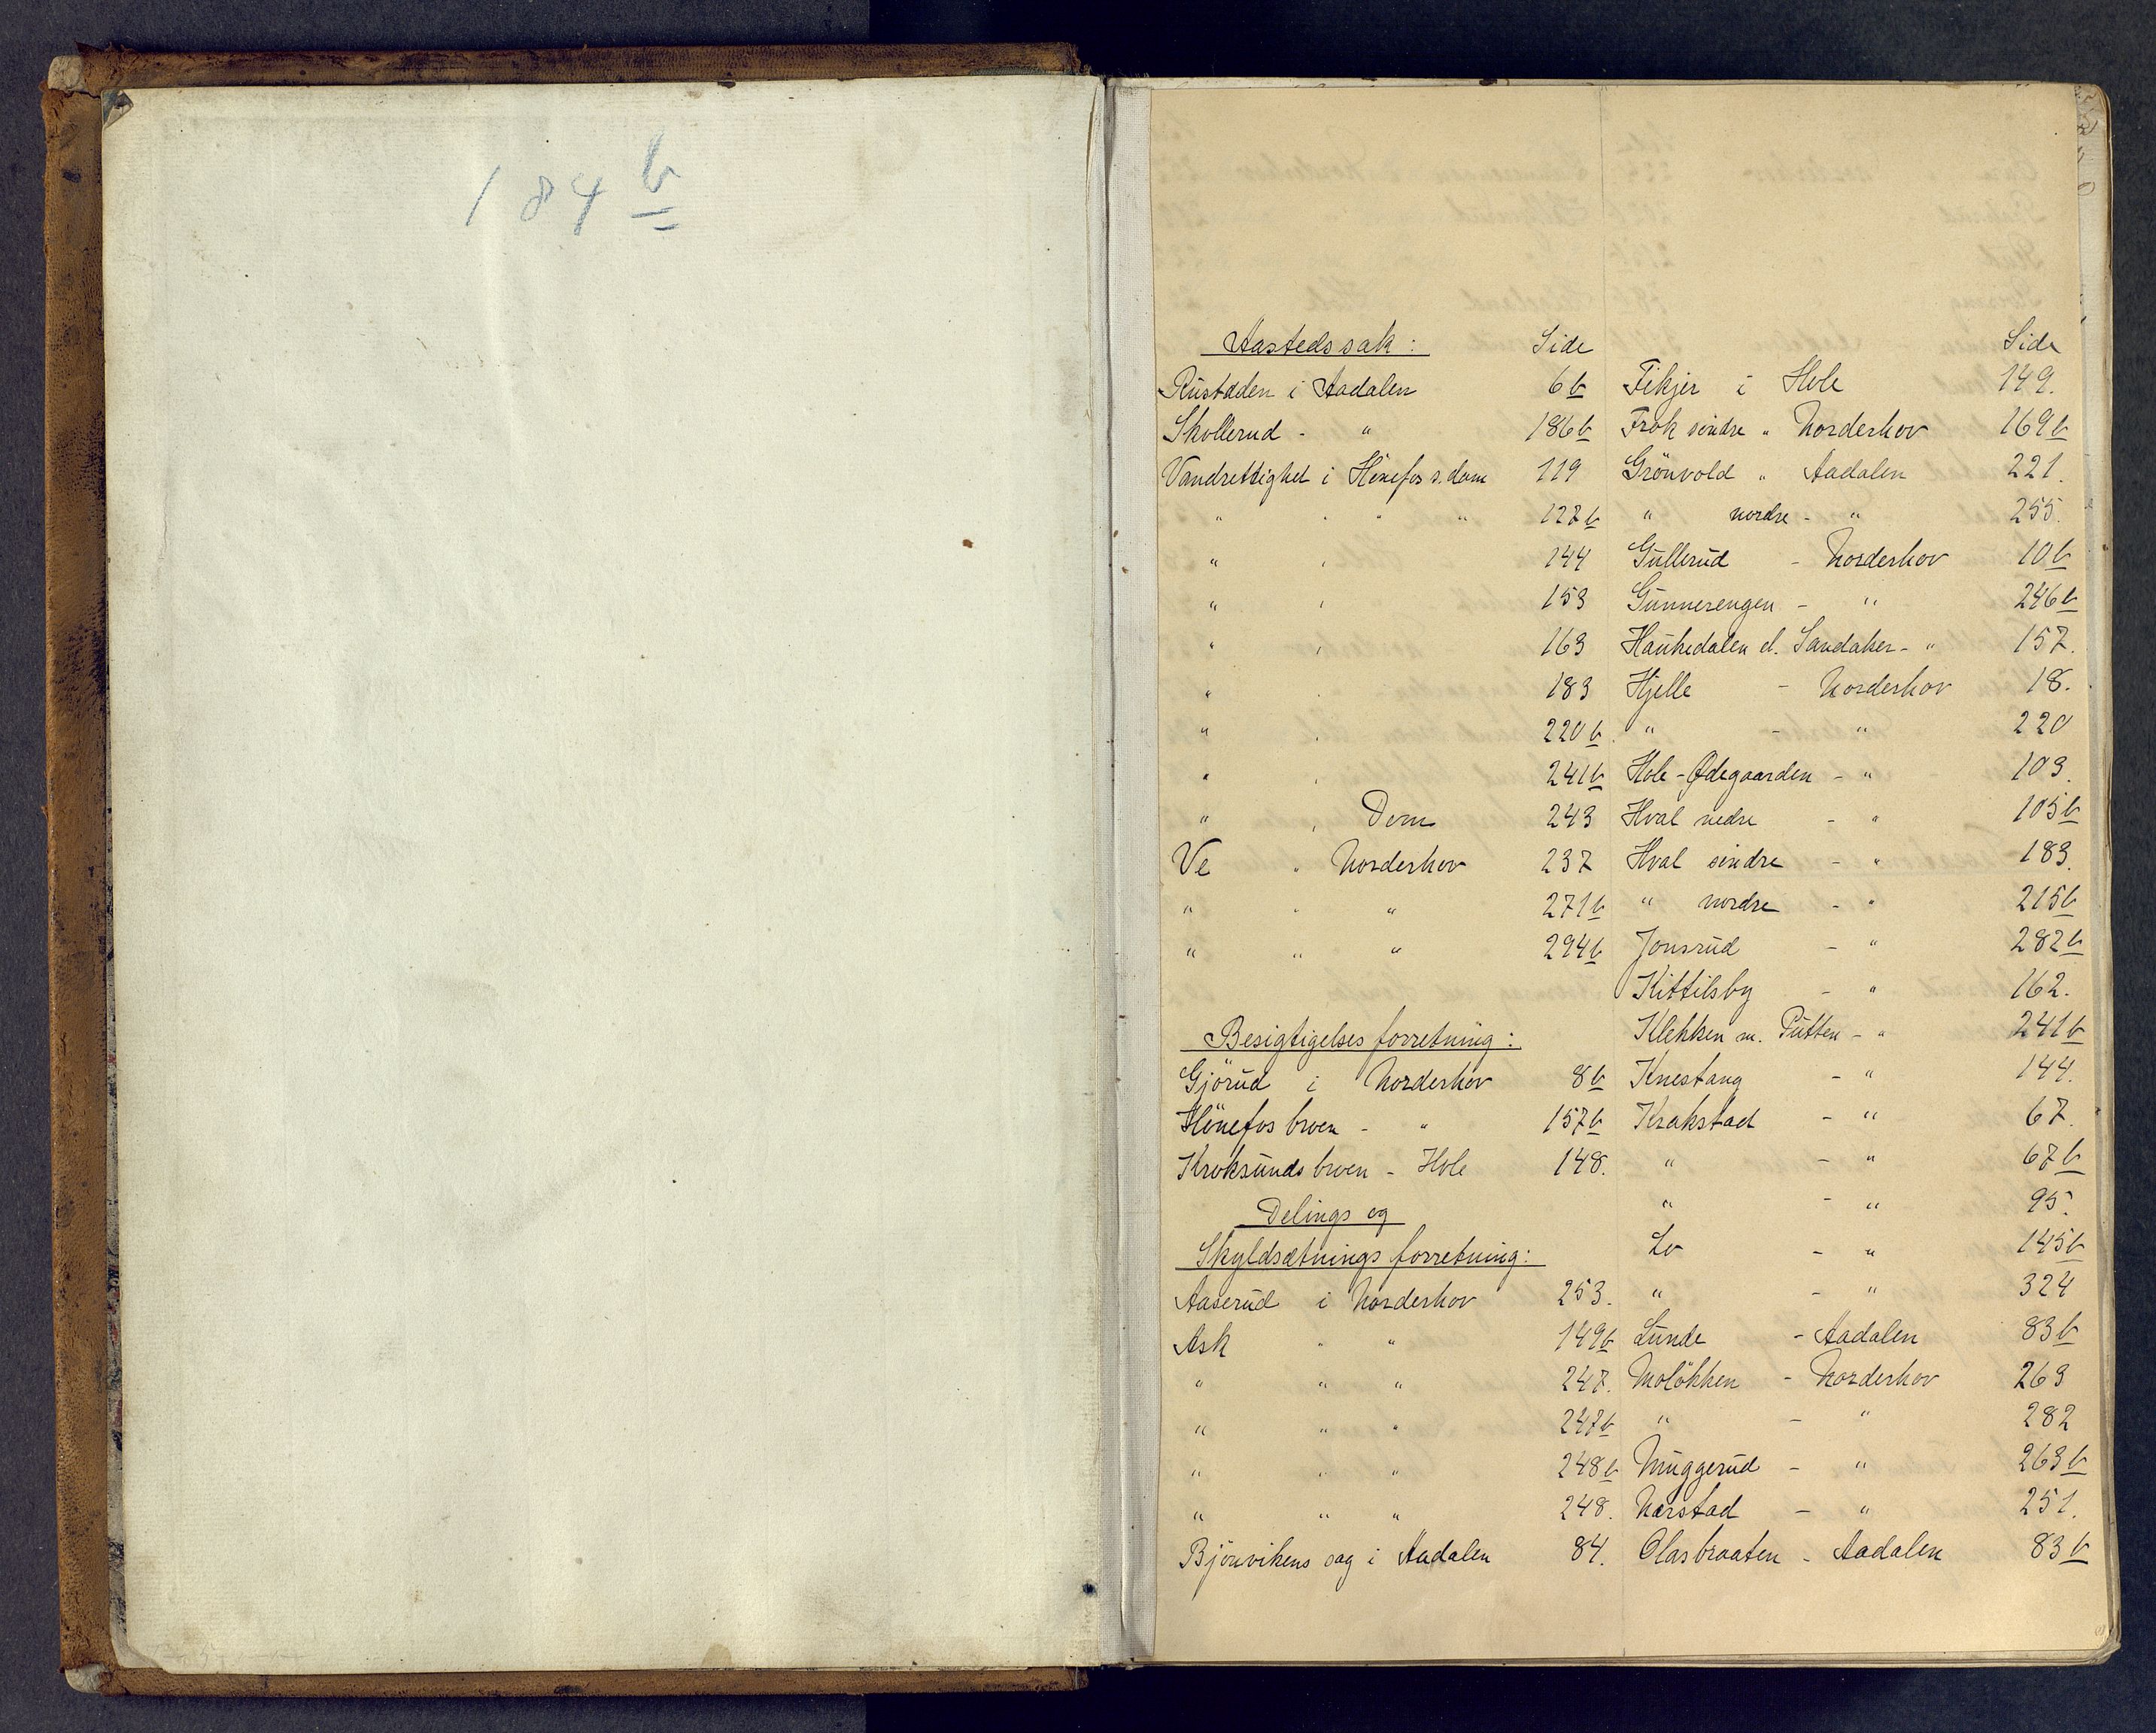 184 b
Aastedssak: Side
Rustaden i Aadalen 6 b
Skollerud - " 186 b
Vandrettighet i Hönefos s. dam 119
" " " " 127 b
" " 144
" " 153
" " 163
" " 183
" " 220 b
" " 241 b
" " Dom 243
Ve " Norderhov 237
" " " 271 b
" " " 294 b
Besigtigelses forretning:
Gjörud i Norderhov 8 b
Hönefos broen - " 157 b
Kroksunds broen - Hole 148.
Delings og
Skyldsætnings forretning:
Aaserud i Norderhov 253.
Ask " " 149 b
" " " 247.
" " " 247 b
" " " 248 b
" " " 248.
Bjönvikens sag i Aadalen 84.
Side
Fikjer i Hole 149.
Frok söndre " Norderhov 169 b
Grönvold " Aadalen 221.
" nordre - " 255.
Gullerud - Norderhov 10 b
Gunnerengen - " 246 b
Haukedalen el. Sandaker - " 157.
Hjelle - Norderhov 18.
" - " 220
Hole-Ødegaarden - " 103.
Hval nedre - " 105 b
Hval söndre - " 183.
" nordre - " 215 b
Jonsrud - " 282 b
Kittilsby - " 162.
Klekken m. Putten - " 241 b
Knestang - " 144.
Krakstad - " 67.
" - " 67 b
" - " 95.
Lo - " 145 b
" - " 324
Lunde - Aadalen 83 b
Molökken - Norderhov 263
" - " 282
Muggerud - " 263 b
Narstad - " 251.
Olasbraaten - Aadalen 83 b